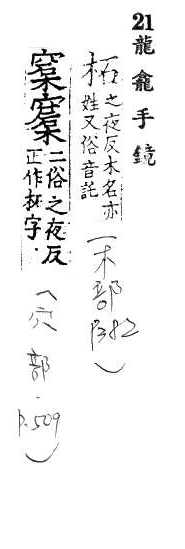 21 龍龕手鏡
柘 之夜反木名亦
姓又俗音託
(木部 P.382)
二俗之夜反
正作柘字.
(穴部. p.509)